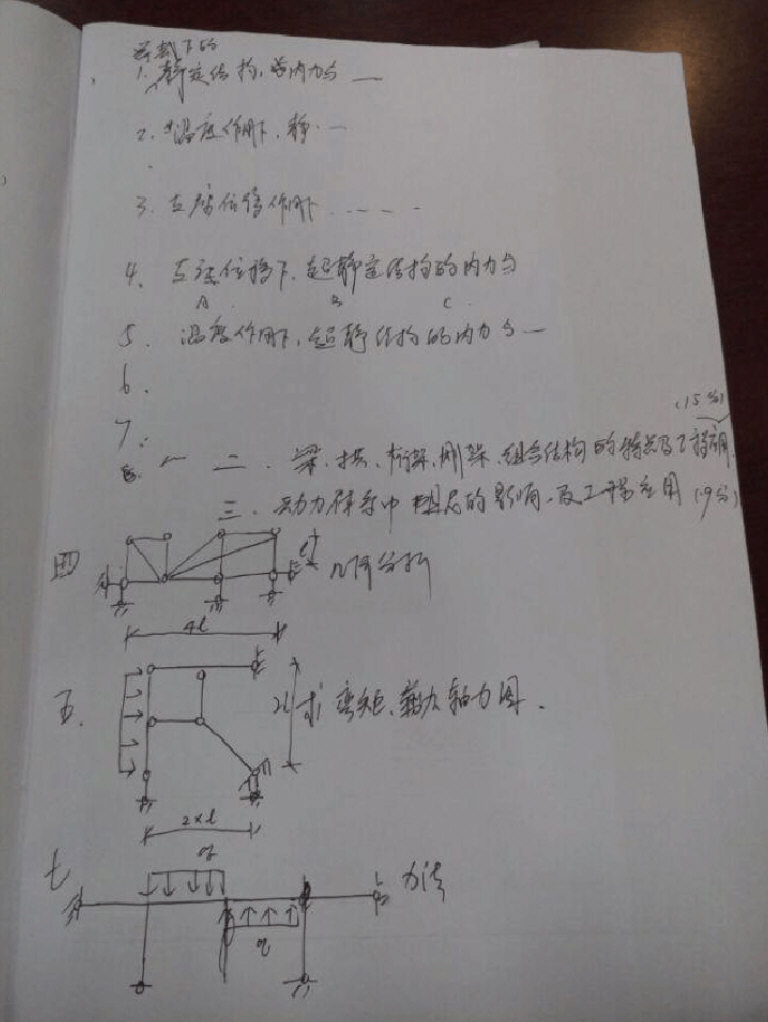 荷载下的
1. 静定结构,其内力与 —
2. 温度作用下,静·—
3. 支座位移作用下 ----
4. 支座位移下,超静定结构的内力与
A B C
5. 温度作用下,超静结构的内力与—
6.
7.
(15分)
8. 二、梁、拱、桁架、刚架、组合结构的特点及工程应用
三、动力体系中阻尼的影响、及工程应用 (9分)
四 l 几何分析
4l
五. 2l 求弯矩、剪力、轴力图.
2×l
七 q 力法
q